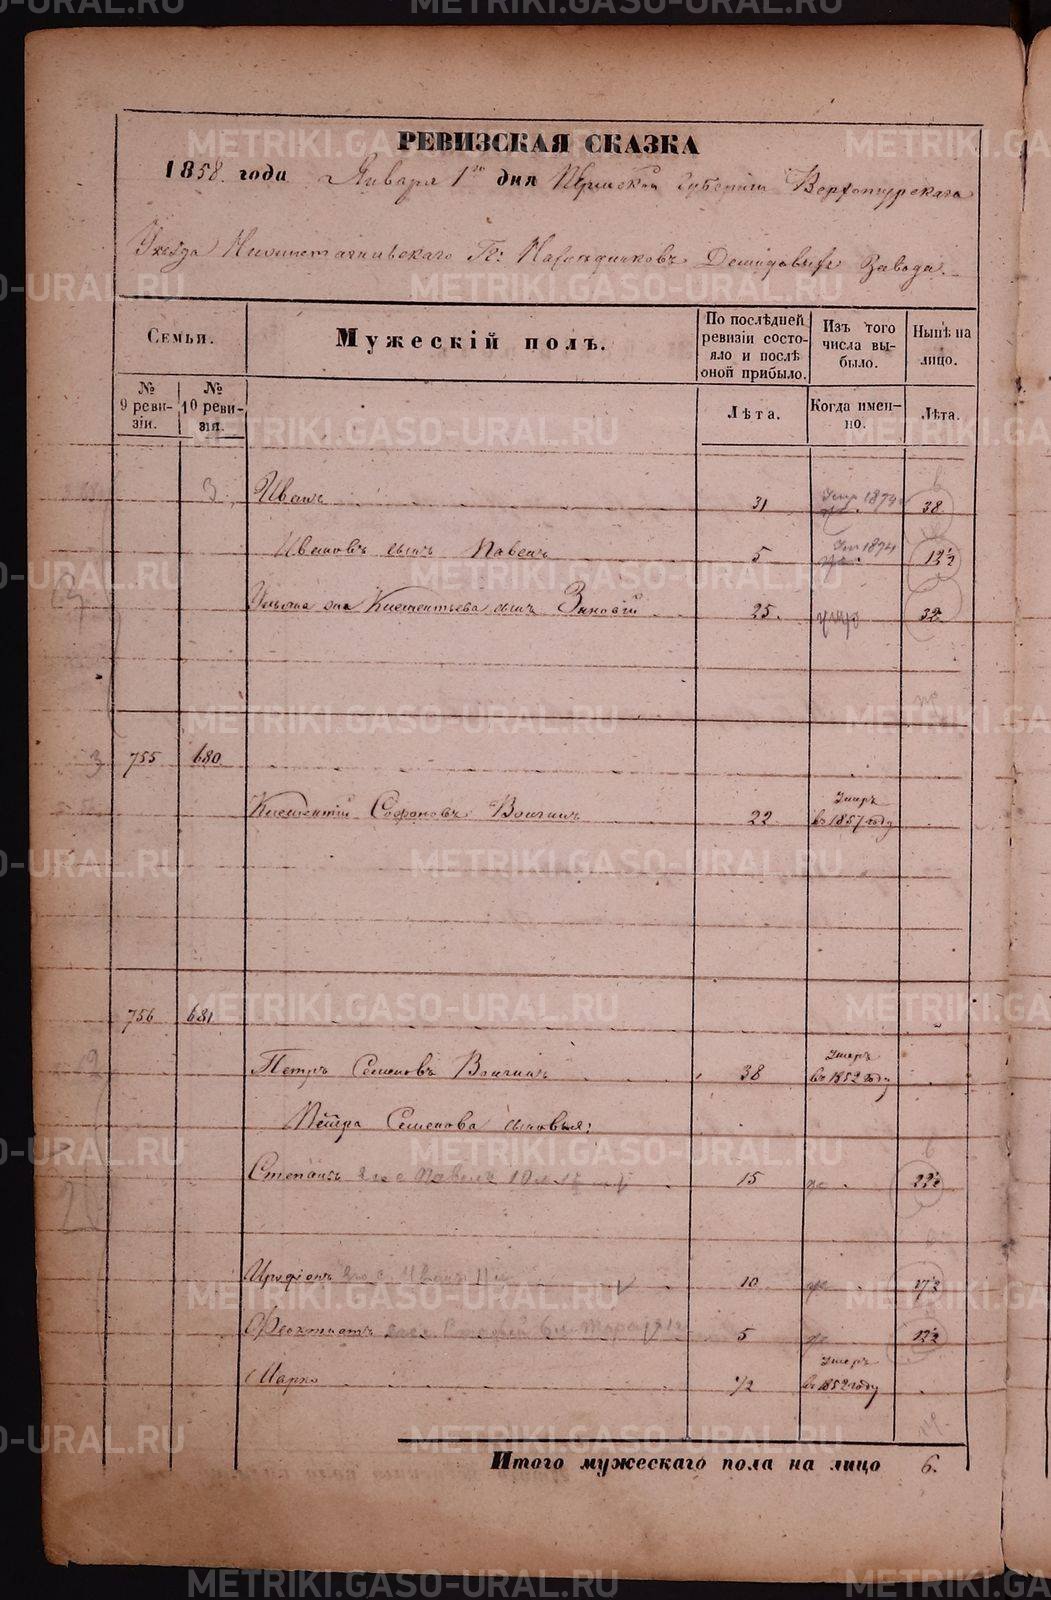 РЕВИЗСКАЯ СКАЗКА
1858 года Января 1го дня Пермской Губернии Верхотурскаго
Уезда Нижнетагильскаго Гг: Наследниковъ Демидовыхъ Завода.
Семьи.
Мужескій полъ.
По послѣдней ревизіи состояло и послѣ оной прибыло.
Изъ того числа выбыло.
Нынѣ на лицо.
№ 9 ревизіи.
№ 10 ревизія.
Лѣта.
Когда именно.
Лѣта.
3 Иванъ 31 Умер 1874 38
Ивановъ сынъ Павелъ 5 Ум 1874 12½
Клементьева сынъ Зиновій 25. 32
755 680
Клементій Софроновъ Волгинъ 22 Умеръ въ 1857 году
756 681
Петръ Семеновъ Волгинъ 38 Умеръ въ 1852 году
Петра Семенова сыновья:
Степанъ его с Павелъ 10 15 22½
Иродіонъ его с. Иванъ 10 17½
Феоктистъ 5 12½
Марко ½ Умеръ въ 1852 году
Итого мужескаго пола на лицо 6.
METRIKI.GASO-URAL.RU